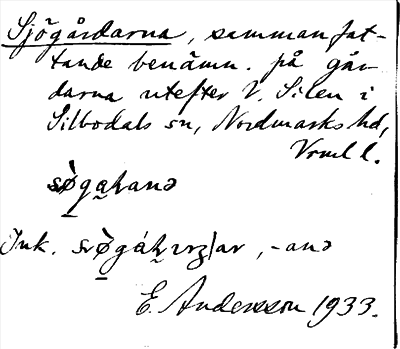 Sjögårdarna, sammanfat-
tande benämn. på går-
darna utefter V. Silen i
Silbodals sn, Nordmarks hd,
Vrml l.
Ink. , -anə
E. Andersson 1933.